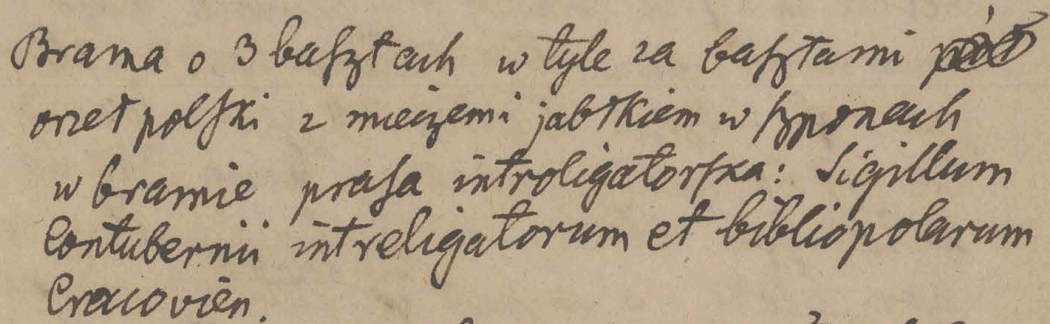 Brama o 3 basztach w tyle za basztami
orzeł polski z mieczem i jabłkiem w szponach
w bramie prasa introligatorska: Sigillum
Contubernii intreligatorum et bibliopolarum
Cracovien.